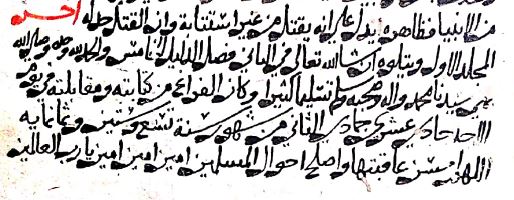 من الانبيا فظاهره يدل على انه يقتل من غير استتابة وان القتل حد له اخر
المجلد الاول ويتلوه ان شا الله تعالى في الثاني فصل الدليل الخامس والحمد لله وحده وصلى الله
على سيدنا محمد واله وصحبه وسلم تسليما كثيرا وكان الفراغ من كتابته ومقابلته في يوم
الاحد حادي عشري جمادي الثاني من شهور سنة تسع وستين وثمانمايه
اللهم احسن عاقبتها واصلح احوال المسلمين امين امين امين يا رب العالمين